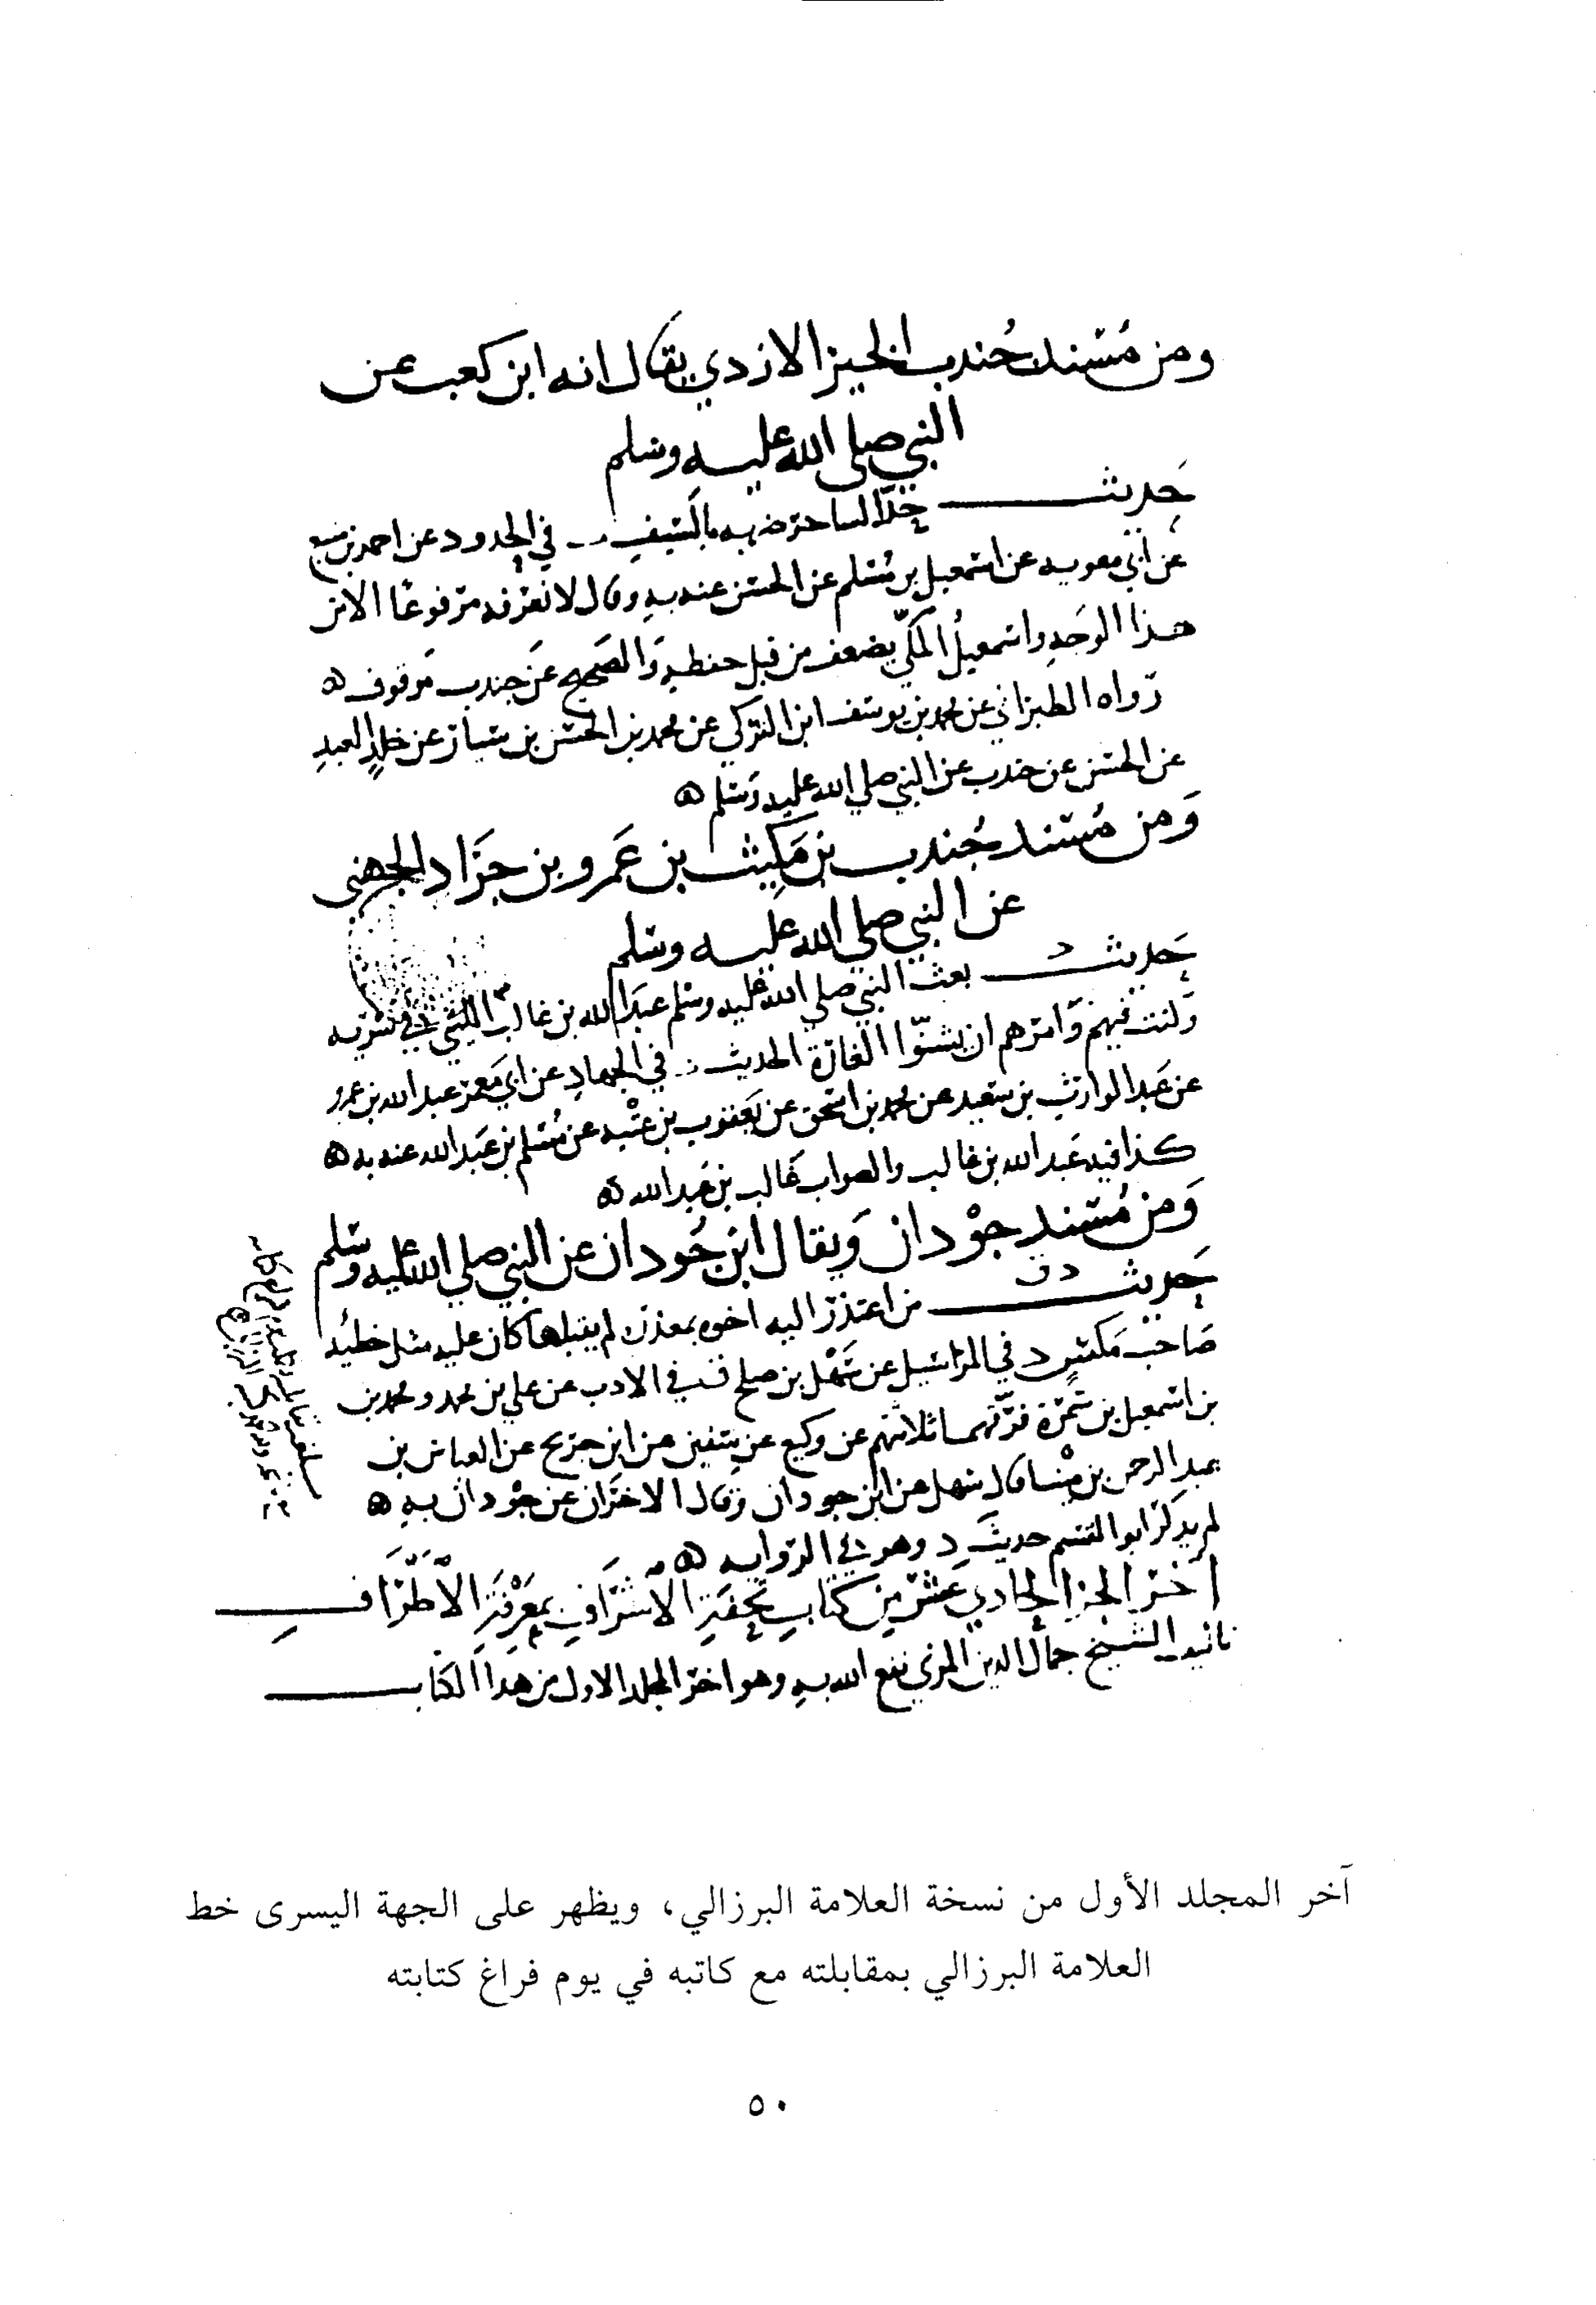 ومن مسند جندب الخير الازدي يقال انه ابن كعب عن
النبي صلى الله عليه وسلم
حديث حد الساحر ضربه بالسيف ت في الحدود عن احمد بن منيع
عن ابي معويه عن اسمعيل بن مسلم عن الحسن عنه به وقال لا نعرفه مرفوعا الا من
هذا الوجه واسمعيل المكي يضعف من قبل حفظه والصحيح عن جندب موقوف ه
رواه الطبراني عن محمد بن يوسف ابن التركي عن محمد بن الحسن بن سيار عن خلد العبد
عن الحسن عن جندب عن النبي صلى الله عليه وسلم ه
ومن مسند جندب بن مكيث بن عمرو بن جراد الجهني
عن النبي صلى الله عليه وسلم
حديث د بعث النبي صلى الله عليه وسلم عبد الله بن غالب الليثي في سريه
وكنت فيهم وامرهم ان يشنوا الغارة الحديث د في الجهاد عن ابي معمر عبد الله بن عمرو
عن عبد الوارث بن سعيد عن محمد بن اسحق عن يعقوب بن عتبه عن مسلم بن عبد الله عنه به ه
كذا فيه عبد الله بن غالب والصواب غالب بن عبد الله ه
ومن مسند جودان ويقال ابن جودان عن النبي صلى الله عليه وسلم
حديث د ق من اعتذر اليه اخوه بمعذرة لم يقبلها كان عليه مثل خطيئه
صاحب مكس د في المراسيل عن سهل بن صلح ق في الادب عن علي بن محمد ومحمد بن
بن اسمعيل بن سمرة فرقهما ثلاثتهم عن وكيع عن سفين عن ابن جريج عن العباس بن
عبد الرحمن بن مينا قال سهل عن ابن جودان وقال الاخران عن جودان به ه
لم يذكر ابو القسم حديث د وهو في الروايه ه
اخر الجز الحادي عشر من كتاب تحفة الاشراف بمعرفة الاطراف
تاليف الشيخ جمال الدين المزي نفع الله به وهو اخر المجلد الاول من هذا الكتاب
آخر المجلد الأول من نسخة العلامة البرزالي، ويظهر على الجهة اليسرى خط
العلامة البرزالي بمقابلته مع كاتبه في يوم فراغ كتابته
٥٠